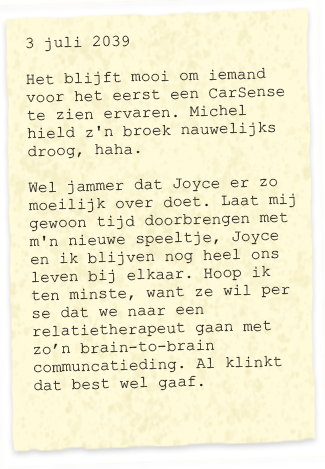 3 juli 2039
Het blijft mooi om iemand
voor het eerst een CarSense
te zien ervaren. Michel
hield z'n broek nauwelijks
droog, haha.
Wel jammer dat Joyce er zo
moeilijk over doet. Laat mij
gewoon tijd doorbrengen met
m'n nieuwe speeltje, Joyce
en ik blijven nog heel ons
leven bij elkaar. Hoop ik
ten minste, want ze wil per
se dat we naar een
relatietherapeut gaan met
zo’n brain-to-brain
communcatieding. Al klinkt
dat best wel gaaf.